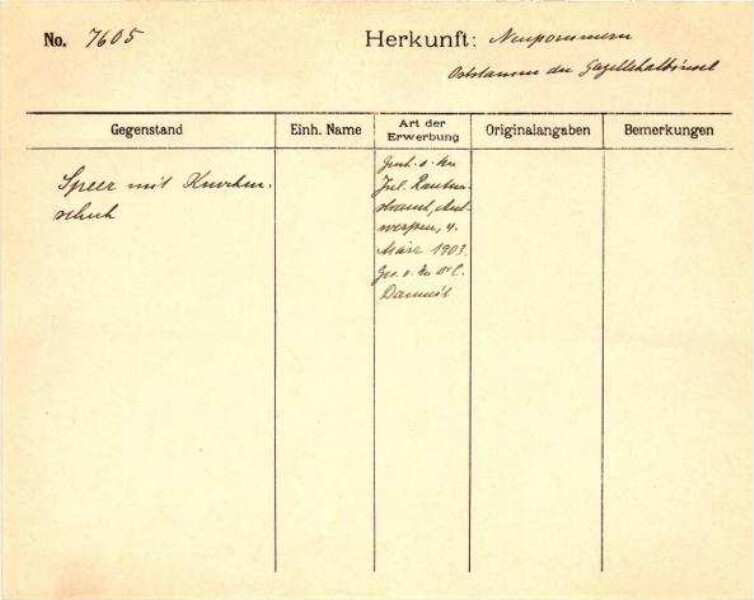 No. 7605
Herkunft: Neupommern
Oststamm der Gazellehalbinsel
Gegenstand
Einh. Name
Art der
Erwerbung
Originalangaben
Bemerkungen
Speer mit Knochen-
schuh
Gesch. v. Hn
Jul. Rauten-
strauch, Ant-
werpen, 4.
März 1903.
Ges. v. Hn Dr C.
Danneil